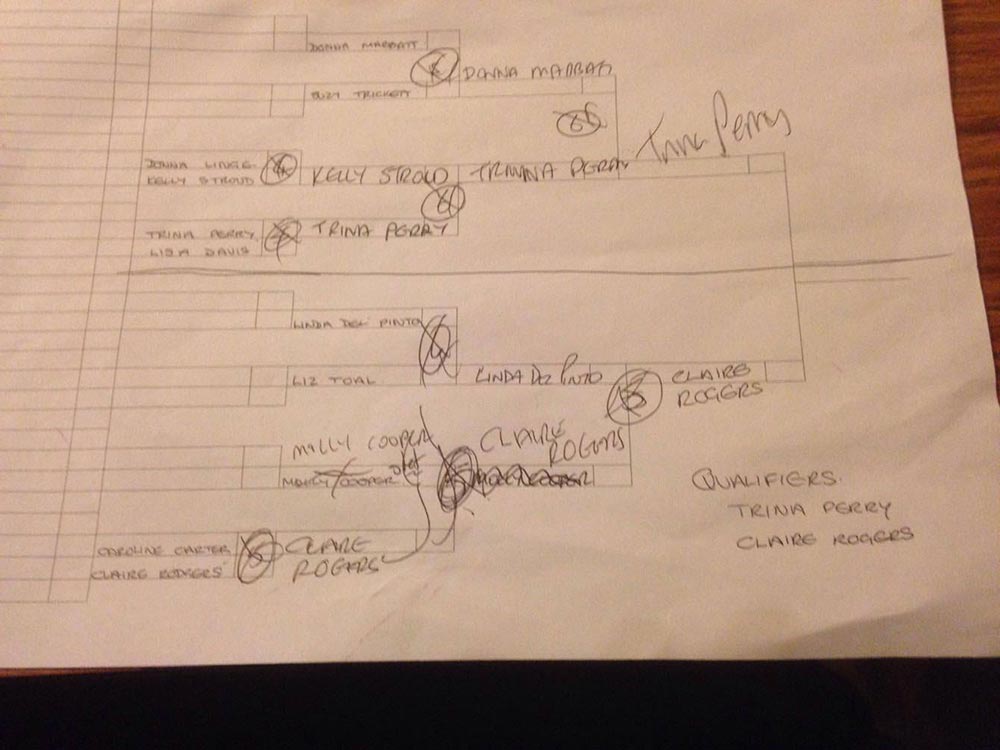 DONNA MABBATT
DONNA MABBATT
SUZY TRICKETT
Trina Perry
DONNA LINGE
KELLY STROUD
KELLY STROUD
TRIANA PERRY
TRINA PERRY
LISA DAVIS
TRINA PERRY
LINDA DEL PINTO
LIZ TOAL
LINDA DEL PINTO
CLAIRE
ROGERS
MOLLY COOPER
CLAIRE
ROGERS
MOLLY COOPER
QUALIFIERS.
TRINA PERRY
CLAIRE ROGERS
CAROLINE CARTER
CLAIRE RODGERS
CLAIRE
ROGERS